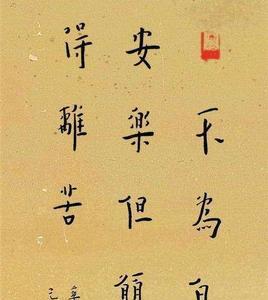 不為自
安樂但願
得離苦